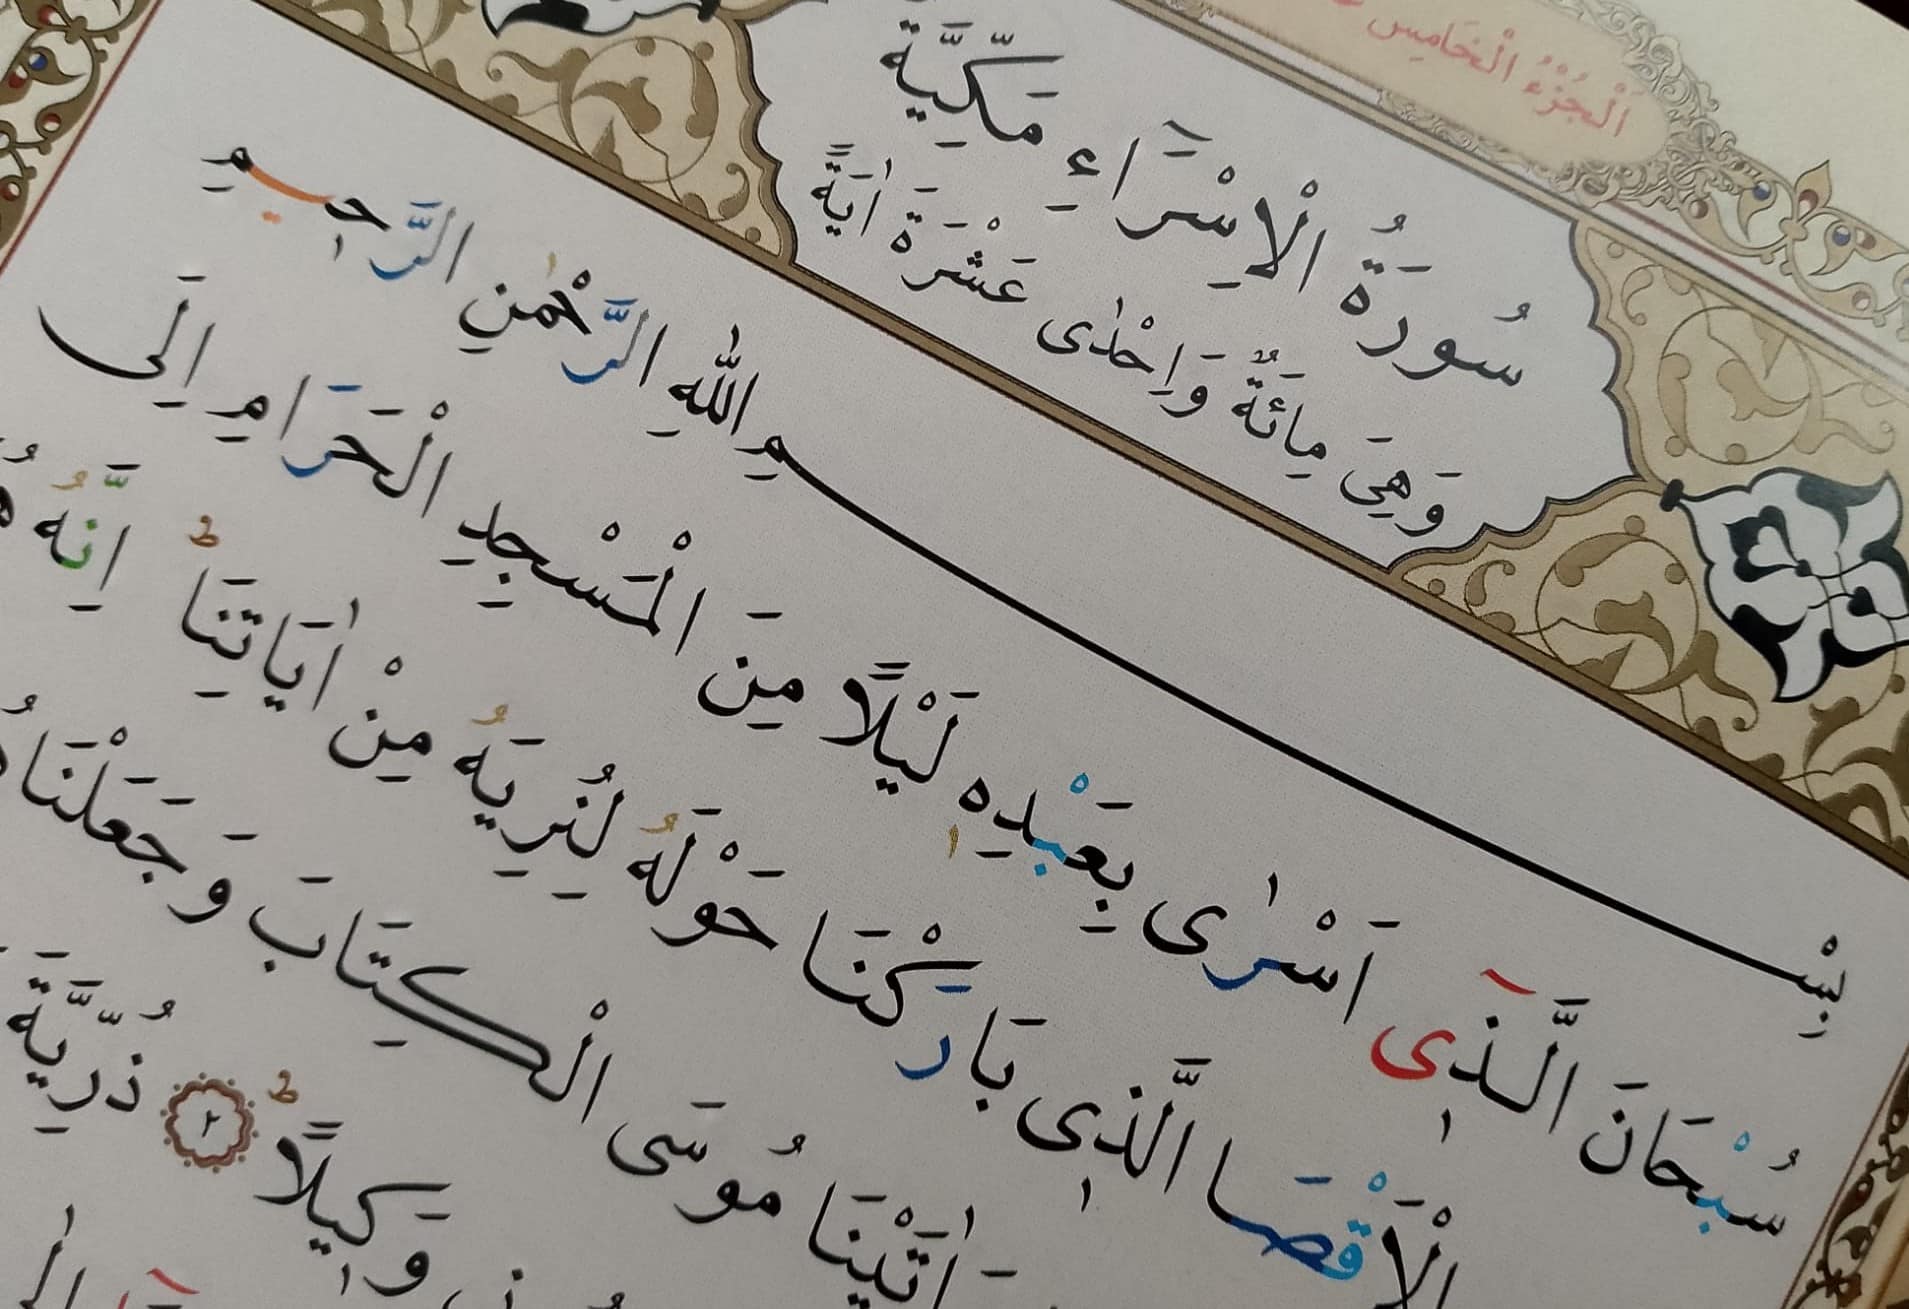 اَلْجُزْءُ الْخَامِسَ
سُورَةُ الْاِسْرَٓاءِ مَكِّيَّةٌ
وَهِيَ مِائَةٌ وَاِحْدٰى عَشْرَةَ اٰيَةً
بِسْمِ اللّٰهِ الرَّحْمٰنِ الرَّحٖيمِ
سُبْحَانَ الَّذٖٓى اَسْرٰى بِعَبْدِهٖ لَيْلًا مِنَ الْمَسْجِدِ الْحَرَامِ اِلَى
الْاَقْصَا الَّذٖى بَارَكْنَا حَوْلَهُ لِنُرِيَهُ مِنْ اٰيَاتِنَا ط اِنَّهُ
اٰتَيْنَا مُوسَى الْكِتَابَ وَجَعَلْنَاهُ
وَكٖيلًا ط ٢ ذُرِّيَّةَ